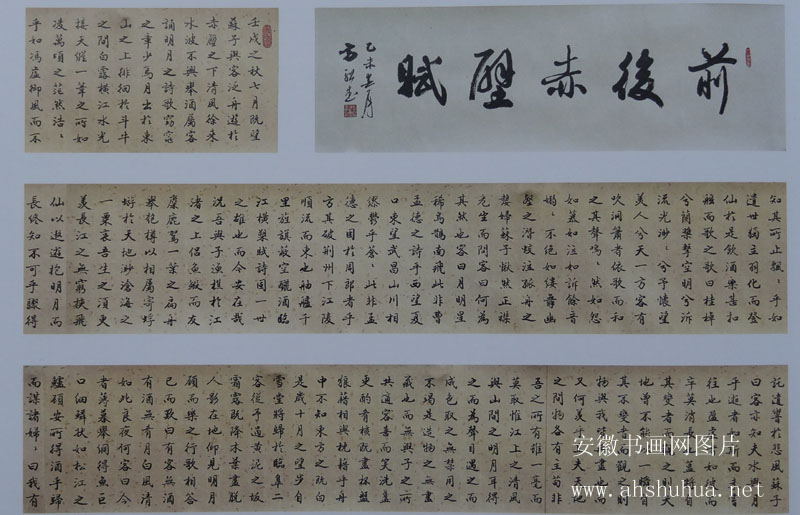 前後赤壁賦
乙未
壬戌之秋七月既望
蘇子與客泛舟遊於
赤壁之下清風徐來
水波不興舉酒屬客
誦明月之詩歌窈窕
之章少焉月出於東
山之上徘徊於斗牛
之間白露橫江水光
接天縱一葦之所如
凌萬頃之茫然浩々
乎如馮虛御風而不
知其所止飄々乎如
遺世獨立羽化而登
仙於是飲酒樂甚扣
舷而歌之歌曰桂棹
兮蘭槳擊空明兮泝
流光渺々兮予懷望
美人兮天一方客有
吹洞簫者依歌而和
之其聲嗚々然如怨
如慕如泣如訴餘音
嫋々不絕如縷舞幽
壑之潛蛟泣孤舟之
嫠婦蘇子愀然正襟
危坐而問客曰何為
其然也客曰月明星
稀烏鵲南飛此非曹
孟德之詩乎西望夏
口東望武昌山川相
繆鬱乎蒼々此非孟
德之困于周郎者乎
方其破荊州下江陵
順流而東也舳艫千
里旌旗蔽空釃酒臨
江橫槊賦詩固一世
之雄也而今安在哉
況吾與子漁樵於江
渚之上侶魚蝦而友
麋鹿駕一葉之扁舟
舉匏樽以相屬寄蜉
蝣於天地渺滄海之
一粟哀吾生之須臾
羨長江之無窮挾飛
仙以遨遊抱明月而
長終知不可乎驟得
託遺響於悲風蘇子
曰客亦知夫水與月
乎逝者如斯而未嘗
往也盈虛者如彼而
卒莫消長也蓋將自
其變者而觀之則天
地曾不能以一瞬自
其不變者而觀之則
物與我皆無盡也而
又何羨乎且夫天地
之間物各有主苟非
吾之所有雖一毫而
莫取惟江上之清風
與山間之明月耳得
之而為聲目遇之而
成色取之無禁用之
不竭是造物之無盡
藏也而吾與子之所
共適客喜而笑洗盞
更酌肴核既盡杯盤
狼籍相與枕藉乎舟
中不知東方之既白
是歲十月之望步自
雪堂將歸於臨皋二
客從予過黃泥之坂
霜露既降木葉盡脫
人影在地仰見明月
顧而樂之行歌相答
已而歎曰有客無酒
有酒無肴月白風清
如此良夜何客曰今
者薄暮舉網得魚巨
口細鱗狀如松江之
鱸顧安所得酒乎歸
而謀諸婦々曰我有
安徽书画网图片
www.ahshuhua.net